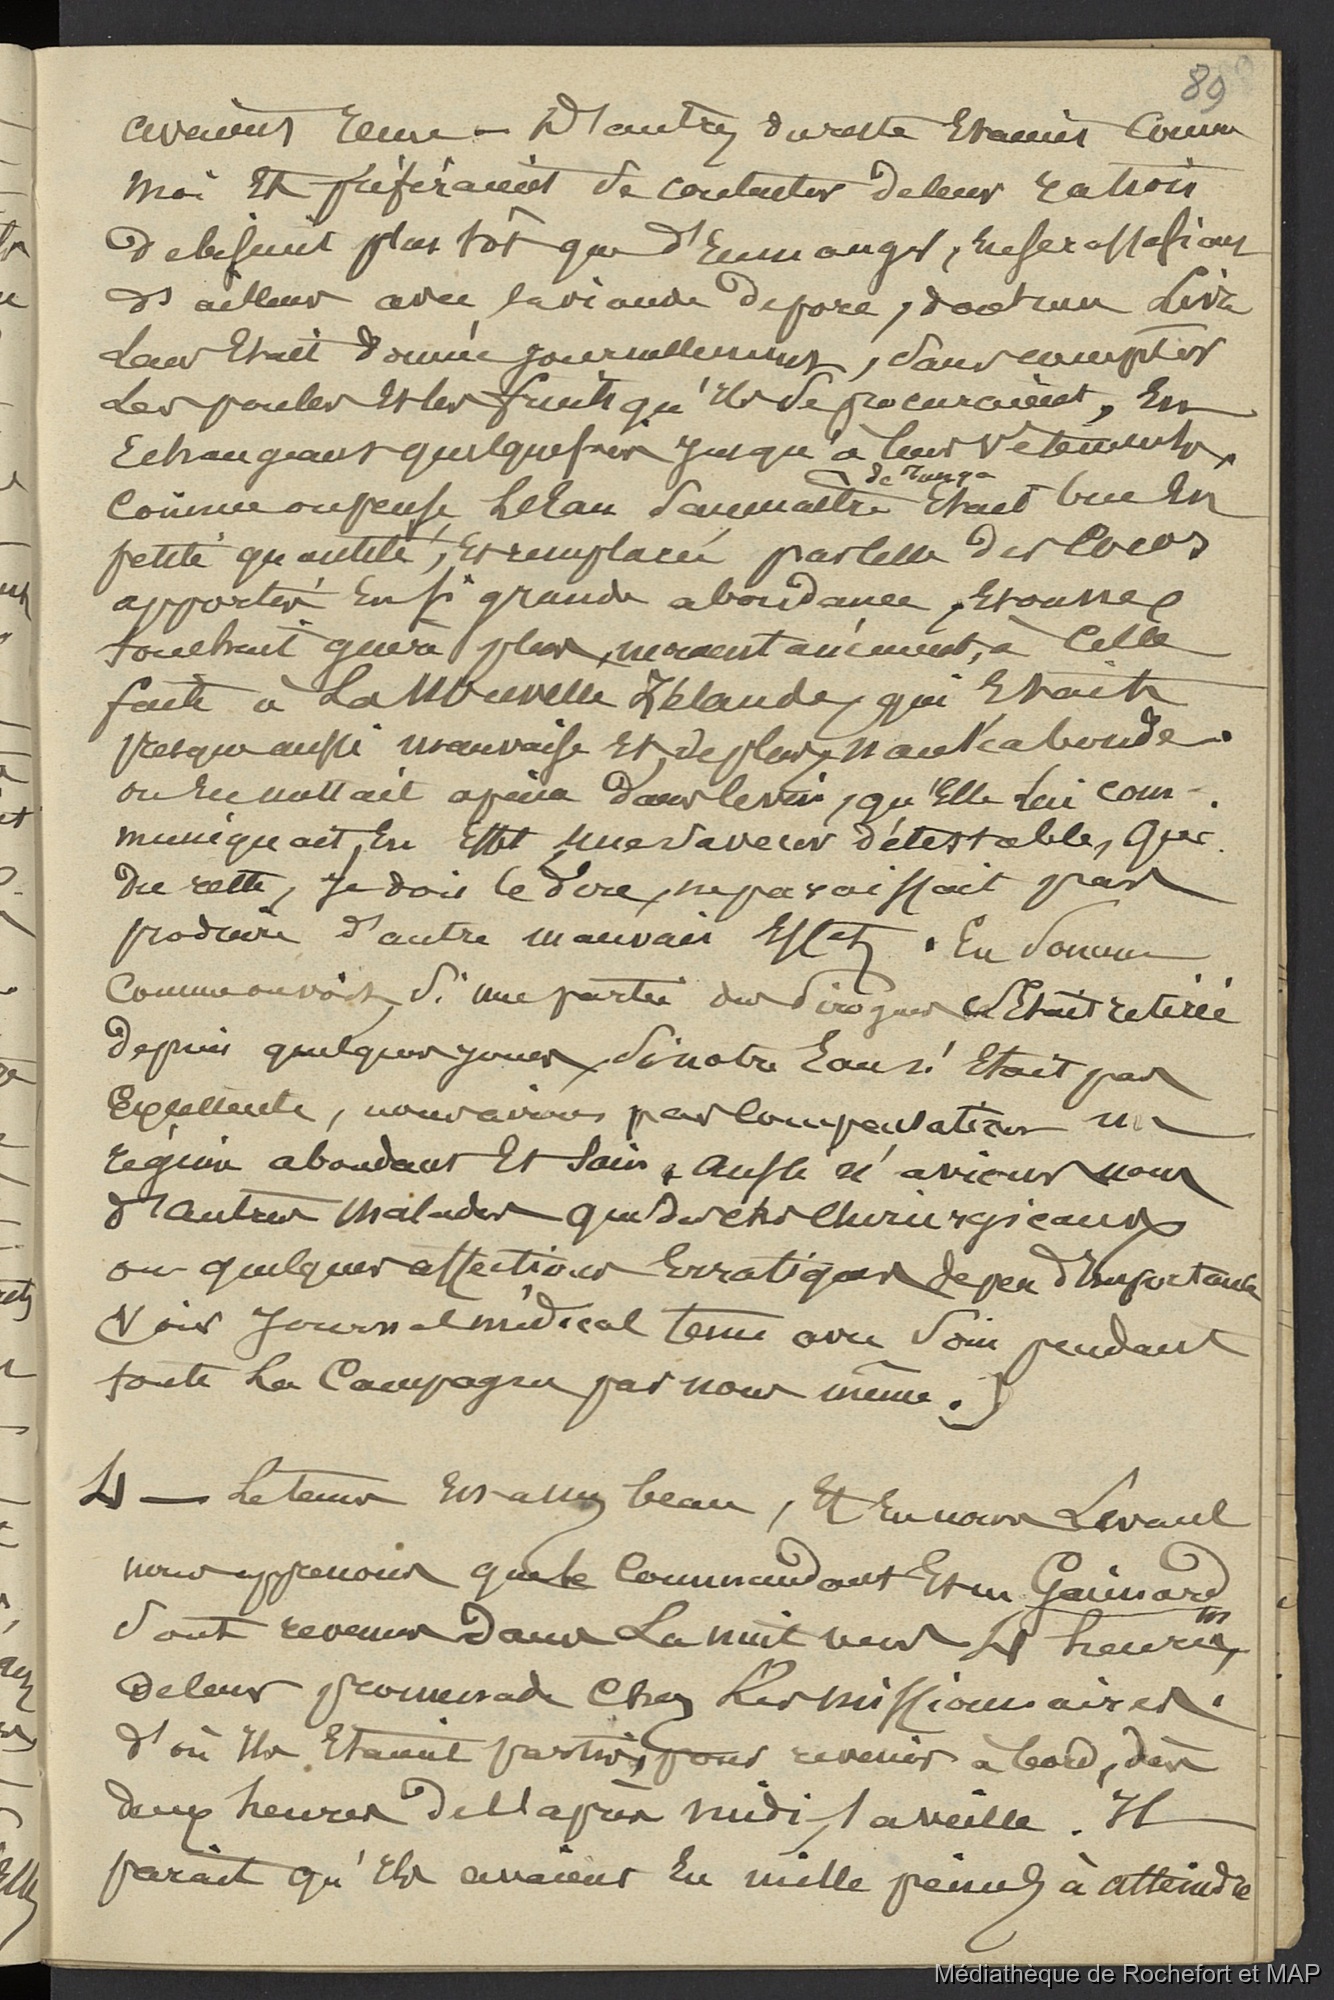 89
avaient tenu — D'autres du reste Etaient Comme
moi Et préféraient se contenter de leur ration
de biscuit plus tôt que d'En manger, En se rassasiant
d'ailleurs avec la viande de porc, dont une Livre
Leur Etait donnée journellement, sans compter
Les poules Et les fruits qu'ils se procuraient, En
Echangeant quelquefois jusqu'à leurs vêtements.
Comme on pense L'Eau saumatre de Tonga Etait bue En
petite quantité, Et remplacée par celle des Cocos
apportés En si grande abondance, Et on ne
touchait guère plus, momentanément, à Celle
faite à La Nouvelle Zélande, qui Etait
presque aussi mauvaise Et de plus nauséabonde.
on En mettait à peine dans le vin, qu'Elle Lui com-
muniquait, En Effet une saveur détestable, que
du reste, je dois le dire, ne paraissait pas
produire d'autre mauvais Effet. En somme
Comme on voit, si une partie des pirogues s'Etait retirée
depuis quelques jours, si notre Eau n'Etait pas
Excellente, nous avions par Compensation un
régime abondant Et sain, aussi n'avions nous
d'autres malades que des cas Chirurgicaux
ou quelques affections Erratiques de peu d'Importance
Voir Journal médical tenu avec soin pendant
toute La Campagne par nous même.)
4 — Le tems Est assez beau, Et En nous Levant
nous apprenons que le Commandant Et m. Gaimard
sont revenus dans La nuit vers 4 heures du matin
de leur promenade Chez Les missionnaires.
d'où ils Etaient partis, pour revenir à bord, dès
deux heures de L'après midi, la veille. Il
parait qu'ils avaient Eu mille peines à atteindre
Médiathèque de Rochefort et MAP